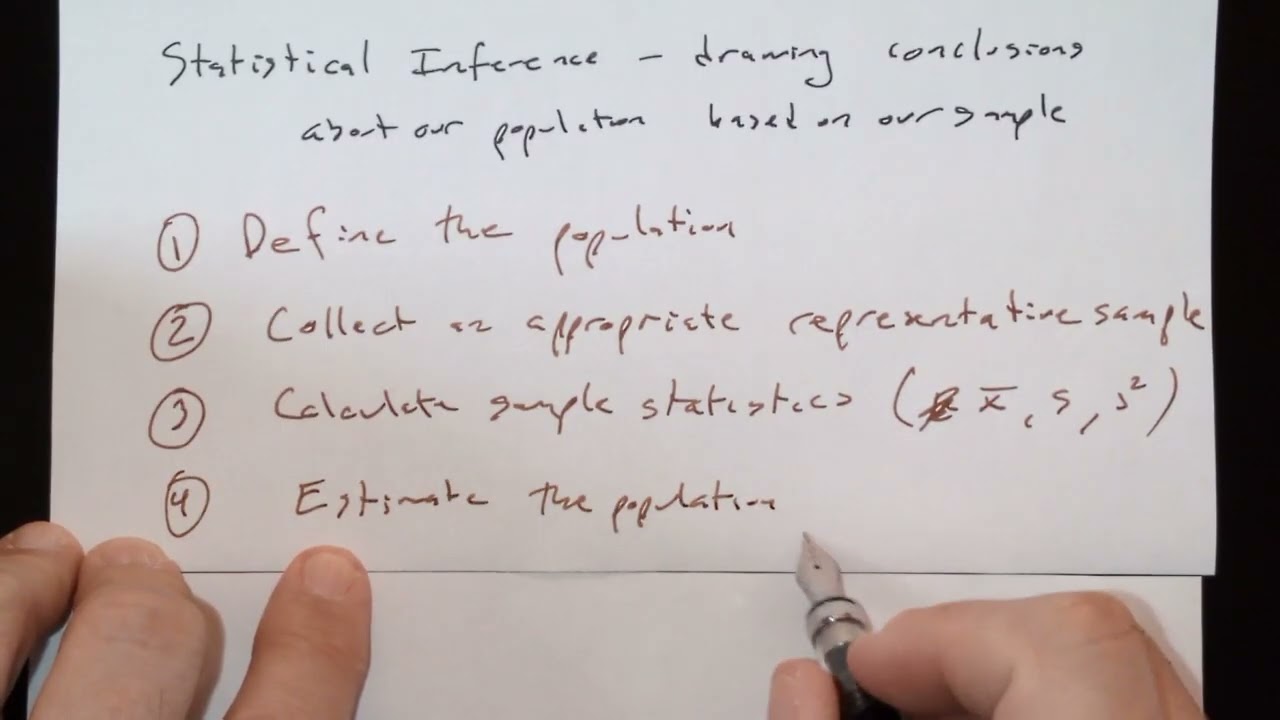 Statistical Inference - drawing conclusions
about our population based on our sample
① Define the population
② Collect an appropriate representative sample
③ Calculate sample statistics ( x̄, s, s²)
④ Estimate the population